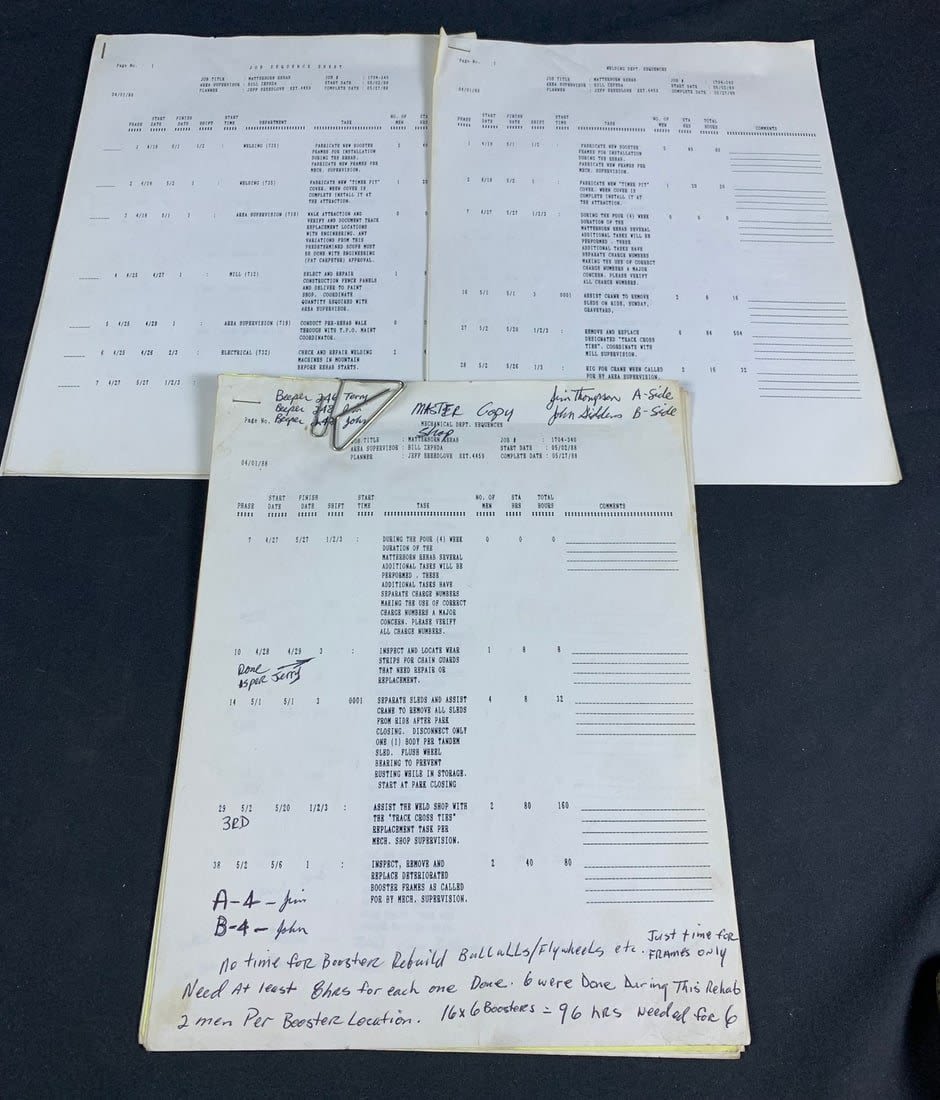 Page No. 1
JOB SEQUENCE SHEET
JOB TITLE : MATTERHORN REHAB JOB # : 1704-340
AREA SUPERVISOR : BILL ZEPEDA START DATE : 05/02/88
PLANNER : JEFF BREEDLOVE EXT.4459 COMPLETE DATE : 05/27/88
04/01/88
PHASE START DATE FINISH DATE SHIFT START TIME DEPARTMENT TASK NO. OF MEN
1 4/18 5/1 1/2 : WELDING (735) FABRICATE NEW BOOSTER
FRAMES FOR INSTALLATION
DURING THE REHAB.
FABRICATE NEW FRAMES PER
MECH. SUPERVISION.
2 4/18 5/2 1 : WELDING (735) FABRICATE NEW "TIMER PIT" 1
COVER. WHEN COVER IS
COMPLETE INSTALL IT AT
THE ATTRACTION.
3 4/18 5/1 1 : AREA SUPERVISION (719) WALK ATTRACTION AND 0
VERIFY AND DOCUMENT TRACK
REPLACEMENT LOCATIONS
WITH ENGINEERING. ANY
VARIATIONS FROM THIS
PREDETERMINED SCOPE MUST
BE DONE WITH ENGINEERING
(PAT CARPETER) APPROVAL.
4 4/25 4/27 1 : MILL (712) SELECT AND REPAIR 1
CONSTRUCTION FENCE PANELS
AND DELIVER TO PAINT
SHOP. COORDINATE
QUANTITY REQUIRED WITH
AREA SUPERVISOR.
5 4/25 4/29 1 : AREA SUPERVISION (719) CONDUCT PRE-REHAB WALK 0
THROUGH WITH T.P.O. MAINT
COORDINATOR.
6 4/25 4/26 2/3 : ELECTRICAL (732) CHECK AND REPAIR WELDING 2
MACHINES IN MOUNTAIN
BEFORE REHAB STARTS.
7 4/27 5/27 1/2/3
Page No. 1
WELDING DEPT. SEQUENCES
JOB TITLE : MATTERHORN REHAB JOB # : 1704-340
AREA SUPERVISOR : BILL ZEPEDA START DATE : 05/02/88
PLANNER : JEFF BREEDLOVE EXT.4459 COMPLETE DATE : 05/27/88
04/01/88
PHASE START DATE FINISH DATE SHIFT START TIME TASK NO. OF MEN STA HRS TOTAL HOURS COMMENTS
1 4/18 5/1 1/2 : FABRICATE NEW BOOSTER
FRAMES FOR INSTALLATION
DURING THE REHAB.
FABRICATE NEW FRAMES PER
MECH. SUPERVISION.
2 4/18 5/2 1 : FABRICATE NEW "TIMER PIT" 1 20 20
COVER. WHEN COVER IS
COMPLETE INSTALL IT AT
THE ATTRACTION.
7 4/27 5/27 1/2/3 : DURING THE FOUR (4) WEEK 0 0 0
DURATION OF THE
MATTERHORN REHAB SEVERAL
ADDITIONAL TASKS WILL BE
PERFORMED . THESE
ADDITIONAL TASKS HAVE
SEPARATE CHARGE NUMBERS
MAKING THE USE OF CORRECT
CHARGE NUMBERS A MAJOR
CONCERN. PLEASE VERIFY
ALL CHARGE NUMBERS.
16 5/1 5/1 3 0001 ASSIST CRANE TO REMOVE 2 8 16
SLEDS ON RIDE, SUNDAY,
GRAVEYARD.
27 5/2 5/20 1/2/3 : REMOVE AND REPLACE 6 84 504
DESIGNATED "TRACK CROSS
TIES". COORDINATE WITH
MILL SUPERVISION.
28 5/2 5/26 1/3 : RIG FOR CRANE WHEN CALLED 2 16 32
FOR BY AREA SUPERVISION.
Beeper 246 Terry
Beeper 248 Jim
Beeper John
MASTER Copy
Shop
Jim Thompson A-Side
John Siddens B-Side
Page No.
MECHANICAL DEPT. SEQUENCES
JOB TITLE : MATTERHORN REHAB JOB # : 1704-340
AREA SUPERVISOR : BILL ZEPEDA START DATE : 05/02/88
PLANNER : JEFF BREEDLOVE EXT.4459 COMPLETE DATE : 05/27/88
04/01/88
PHASE START DATE FINISH DATE SHIFT START TIME TASK NO. OF MEN STA HRS TOTAL HOURS COMMENTS
7 4/27 5/27 1/2/3 : DURING THE FOUR (4) WEEK 0 0 0
DURATION OF THE
MATTERHORN REHAB SEVERAL
ADDITIONAL TASKS WILL BE
PERFORMED . THESE
ADDITIONAL TASKS HAVE
SEPARATE CHARGE NUMBERS
MAKING THE USE OF CORRECT
CHARGE NUMBERS A MAJOR
CONCERN. PLEASE VERIFY
ALL CHARGE NUMBERS.
10 4/28 4/29 3 : INSPECT AND LOCATE WEAR 1 8 8
STRIPS FOR CHAIN GUARDS
THAT NEED REPAIR OR
REPLACEMENT.
Done
as per Terry
14 5/1 5/1 3 0001 SEPARATE SLEDS AND ASSIST 4 8 32
CRANE TO REMOVE ALL SLEDS
FROM RIDE AFTER PARK
CLOSING. DISCONNECT ONLY
ONE (1) BODY PER TANDEM
SLED. FLUSH WHEEL
BEARING TO PREVENT
RUSTING WHILE IN STORAGE.
START AT PARK CLOSING
29 5/2 5/20 1/2/3 : ASSIST THE WELD SHOP WITH 2 80 160
THE "TRACK CROSS TIES"
REPLACEMENT TASK PER
MECH. SHOP SUPERVISION.
3RD
38 5/2 5/6 1 : INSPECT, REMOVE AND 2 40 80
REPLACE DETERIORATED
BOOSTER FRAMES AS CALLED
FOR BY MECH. SUPERVISION.
A-4 - Jim
B-4 - John
no time for Booster Rebuild Ballalls/Flywheels etc. Just time for
FRAMES ONLY
Need At least 8hrs for each one Done. 6 were Done During This Rehab
2 men Per Booster Location. 16x6 Boosters = 96 hrs needed for 6